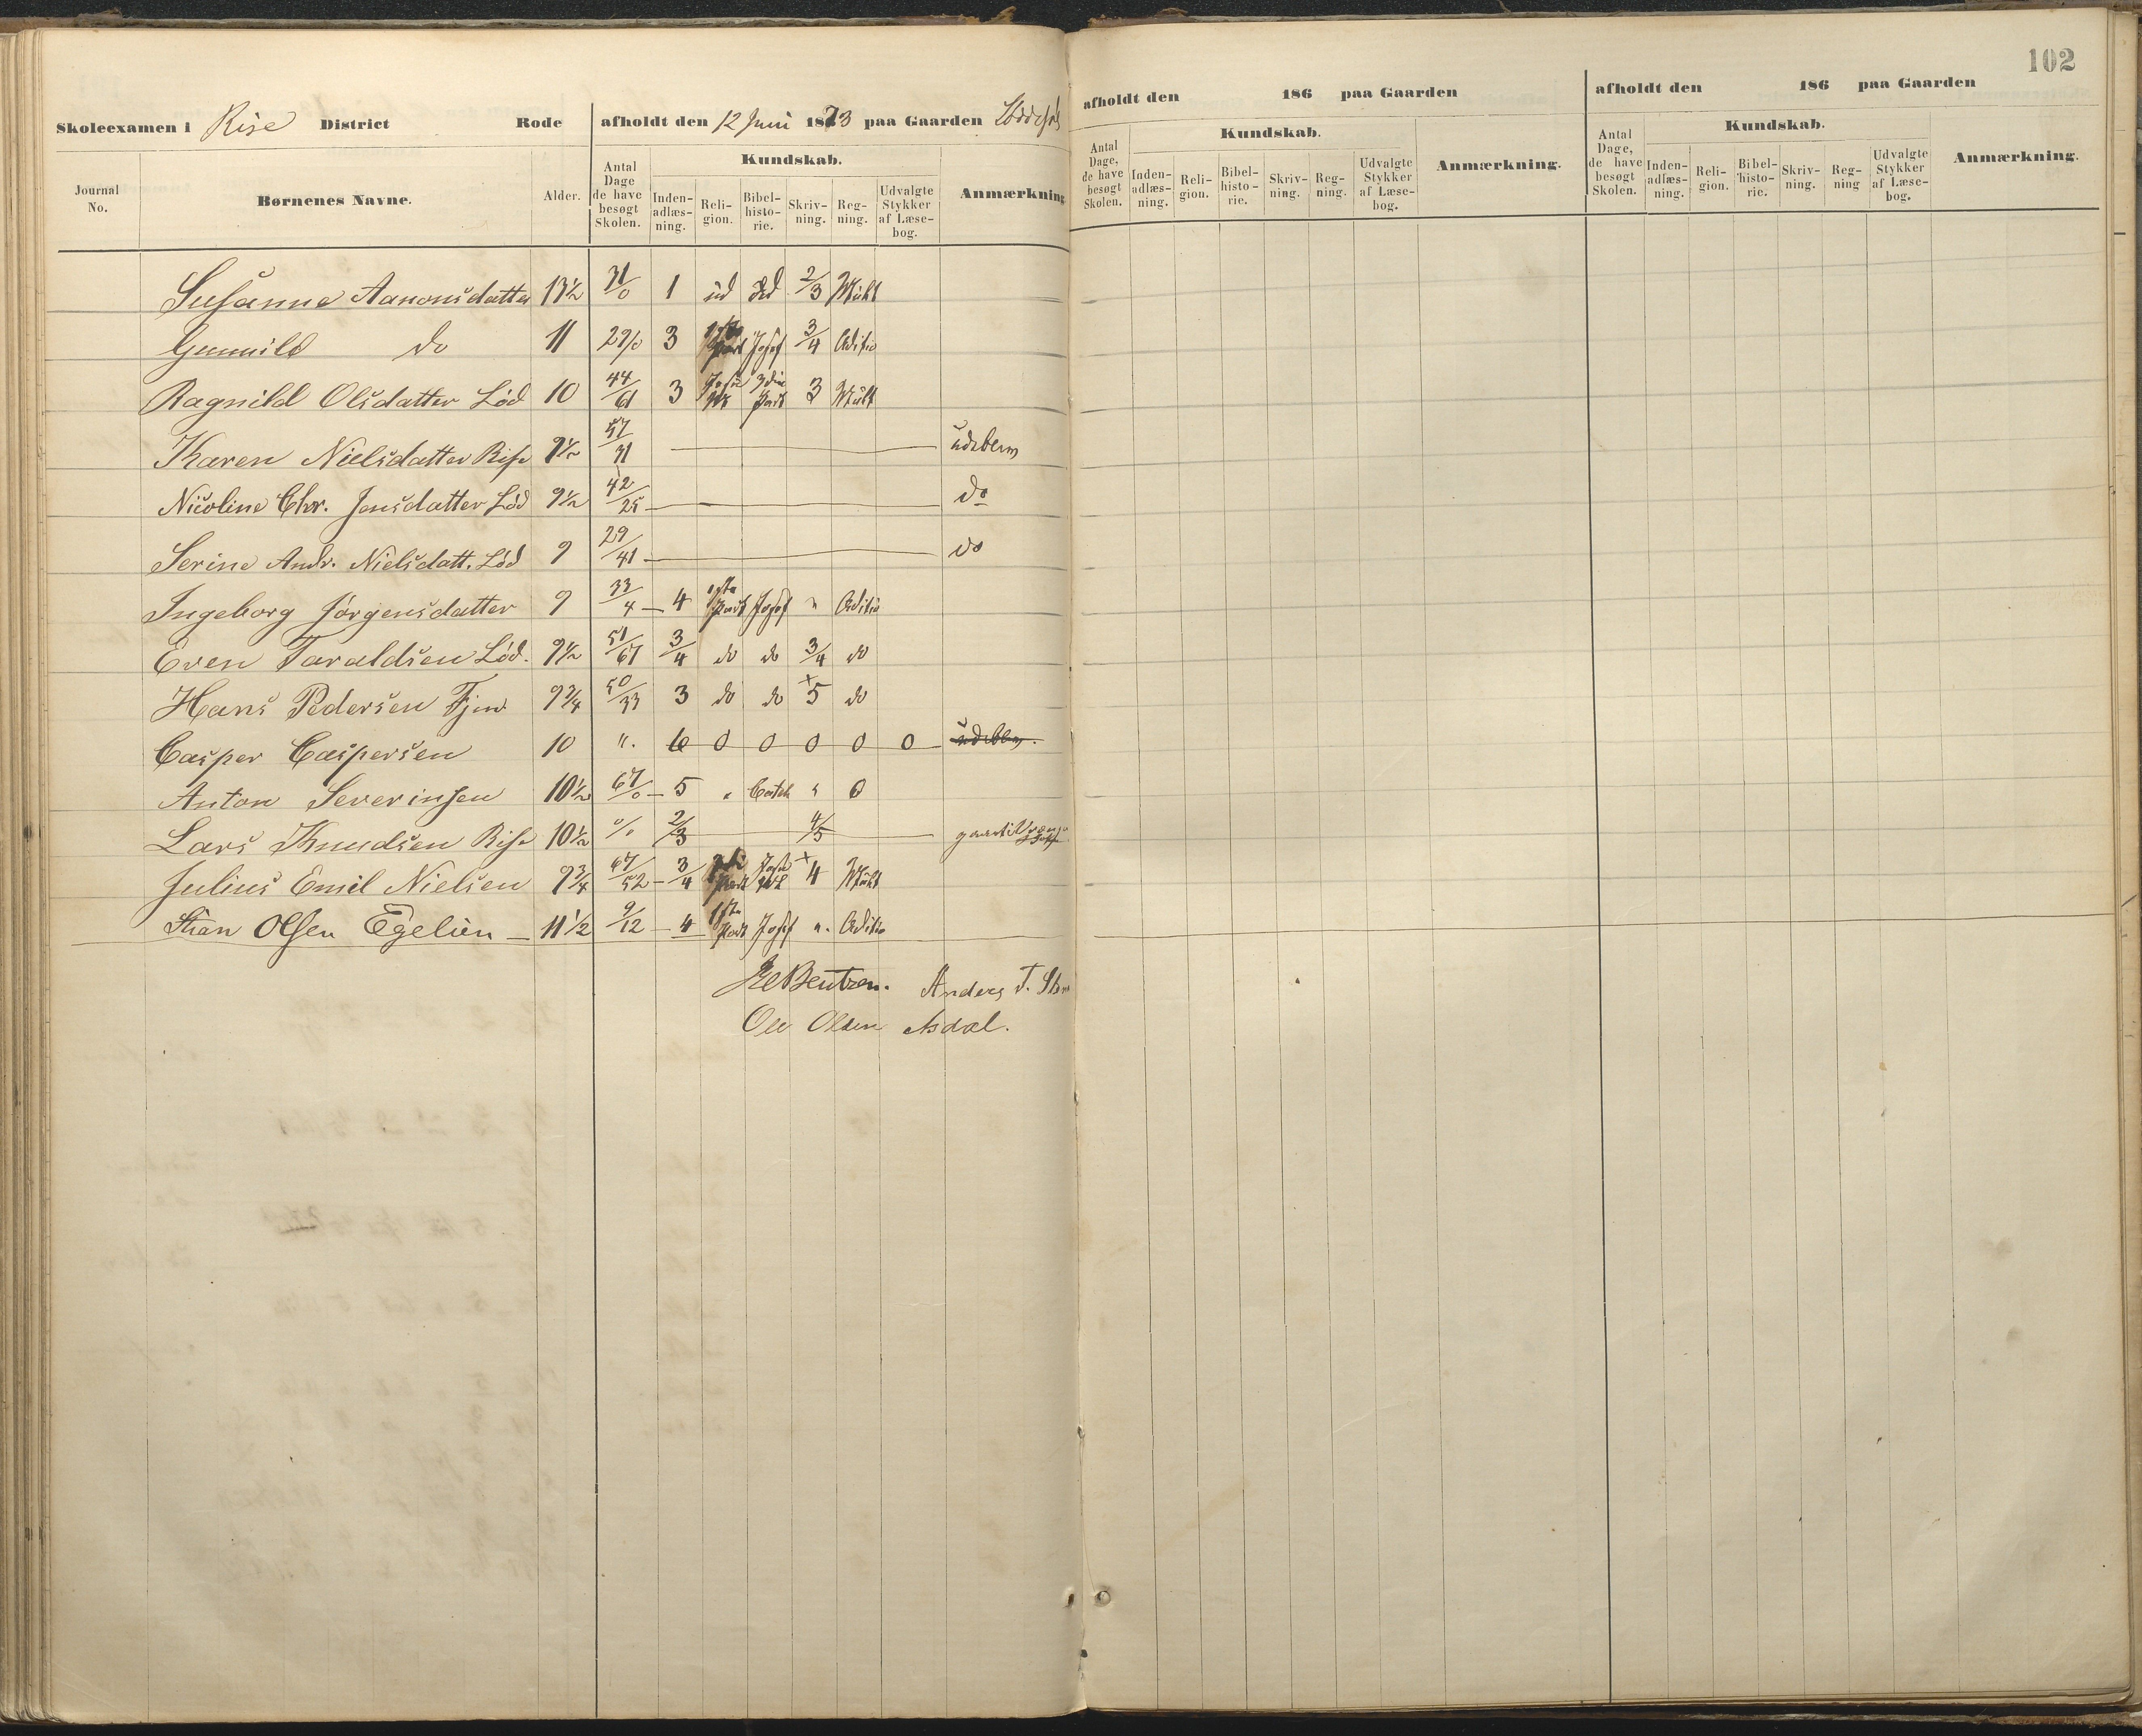 102
Skoleexamen i Rise District Rode afholdt den 12 Juni 1873 paa Gaarden
Journal No. Børnenes Navne. Alder. Antal Dage de have besøgt Skolen. Kundskab. Indenadlæsning. Religion. Bibelhistorie. Skrivning. Regning. Udvalgte Stykker af Læsebog. Anmærkning
Susanne Aanonsdatter 13½ 31/0 1 ud ud 2/3 Mult
Gunnild do 11 29/0 3 1ste Part Josef 3/4 Aditio
Ragnild Olsdatter Lød 10 44/61 3 3die Part 3 Mult
Karen Nielsdatter Rise 9½ 57/31 — udeblev
Nicoline Chr. Jensdatter Lød 9½ 42/25 — do
Serine Andr. Nielsdatt. Lød 9 29/41 — do
Ingeborg Jørgensdatter 9 33/4 — 4 1ste Part Josef " Aditio
Even Taraldsen Lød. 9½ 51/67 3/4 do do 3/4 do
Hans Pedersen 9¾ 50/33 3 do do + 5 do
Casper Caspersen 10 ". 6 0 0 0 0 0 — udeblev.
Anton Severinsen 10½ 67/0 — 5 " Catek " 0
Lars Knudsen Rise 10½ 0/0 2/3 — 4/5 —
Julius Emil Nielsen 9¾ 67/52 — 3/4 Part + 4 Mult
Olsen Egelien — 11½ 9/12 — 4 1ste Part Josef ". Aditio
Bentzen. Anders T.
Ole Olsen Asdal.
afholdt den 186 paa Gaarden
Antal Dage, de have besøgt Skolen. Kundskab. Indenadlæsning. Religion. Bibelhistorie. Skrivning. Regning. Udvalgte Stykker af Læsebog. Anmærkning.
afholdt den 186 paa Gaarden
Antal Dage, de have besøgt Skolen. Kundskab. Indenadlæsning. Religion. Bibelhistorie. Skrivning. Regning Udvalgte Stykker af Læsebog. Anmærkning.